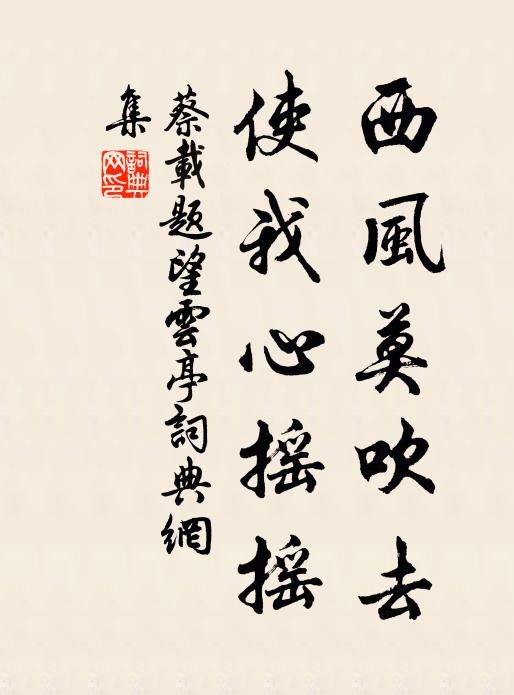 西風莫吹去
使我心摇摇
蔡載題望雲亭詞典網
集
詞典
网印